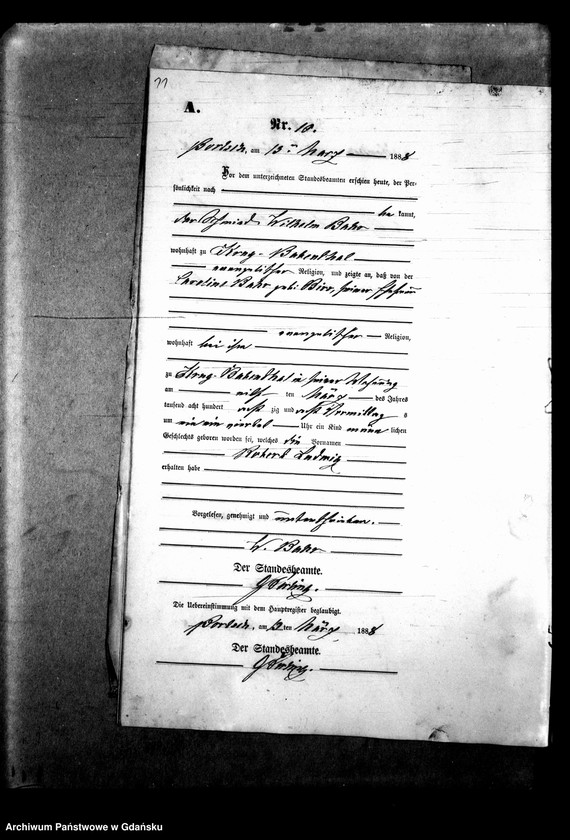 A.
Nr. 18.
am 13ten März 1888
Vor dem unterzeichneten Standesbeamten erschien heute, der Per-
sönlichkeit nach
be kannt,
der Schmied Wilhelm Bahr
wohnhaft zu Krug-Babenthal
evangelischer Religion, und zeigte an, daß von der
Caroline Bahr geb. seiner Ehefrau
evangelischer Religion,
wohnhaft bei ihm
zu Krug-Babenthal in seiner Wohnung
am ten März des Jahres
tausend acht hundert acht zig und acht Vormittag s
um ein viertel Uhr ein Kind männ lichen
Geschlechts geboren worden sei, welches die Vornamen
Robert Ludwig
erhalten habe
Vorgelesen, genehmigt und unterschrieben.
W. Bahr
Der Standesbeamte.
Die Uebereinstimmung mit dem Hauptregister beglaubigt.
am 13ten März 1888
Der Standesbeamte.
Archiwum Państwowe w Gdańsku